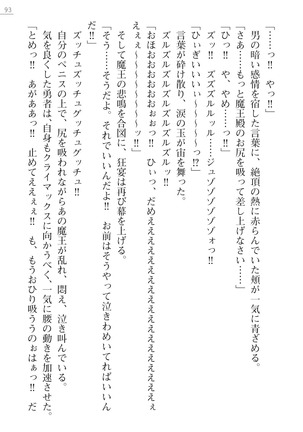 93
「……っ‼　やっ‼」
男の暗い感情を宿した言葉に、絶頂の熱に赤らんでいた頬が一気に青ざめる。
「さあ……もっと魔王殿のお尻を吸って差し上げなさい……」
「ひっ‼　や、やめ……っ‼」
ズルッ‼　ズズズルルッル……ジュゾゾゾゾゾォっ‼
「ひぃぎいいぃぃ〜〜〜〜〜っ⁉」
言葉が砕け散り、涙の玉が宙を舞った。
ズルズルズルズルズルズルッ‼
「おほおおおおおおぉぉっ‼　ひょっ、だめえええええええええええええぇぇ
〜〜〜〜〜〜〜っ‼」
そして魔王の悲鳴を合図に、狂宴は再び幕を上げる。
「そう……そうだよ。それでいいんだよぉ‼　お前はそうやって泣きわめいてればいいん
だ‼」
ズッチュズッチュグッチュグッチュッ‼
自分のペニスの上で、尻を吸われながらあの魔王が乱れ、悶え、泣き叫んでいる。
気を良くした勇者は、自身もクライマックスに向かうべく、一気に腰の動きを加速させた。
「とめっ‼　あがああっ‼　止めてええぇぇ‼　も、もうおひり吸ううのぉはぁっ‼　だ